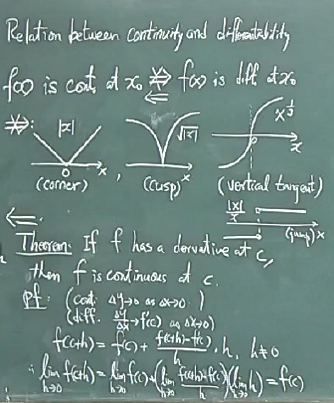 Relation between continuity and differentiability
f(x) is cont. at x₀ ⇏ ⇐ f(x) is diff. at x₀
⇏:
|x| √|x| x^{1/3}
0 x x x
(corner), (cusp) (vertical tangent)
|x|/x
(jump) x
⇐:
Theorem: If f has a derivative at c,
then f is continuous at c.
pf: (cont: Δy→0 as Δx→0.)
(diff: Δy/Δx→f'(c) as Δx→0)
f(c+h) = f(c) + (f(c+h)-f(c))/h · h, h≠0
∴ lim_{h→0} f(c+h) = lim_{h→0} f(c) + (lim_{h→0} (f(c+h)-f(c))/h)(lim_{h→0} h) = f(c)